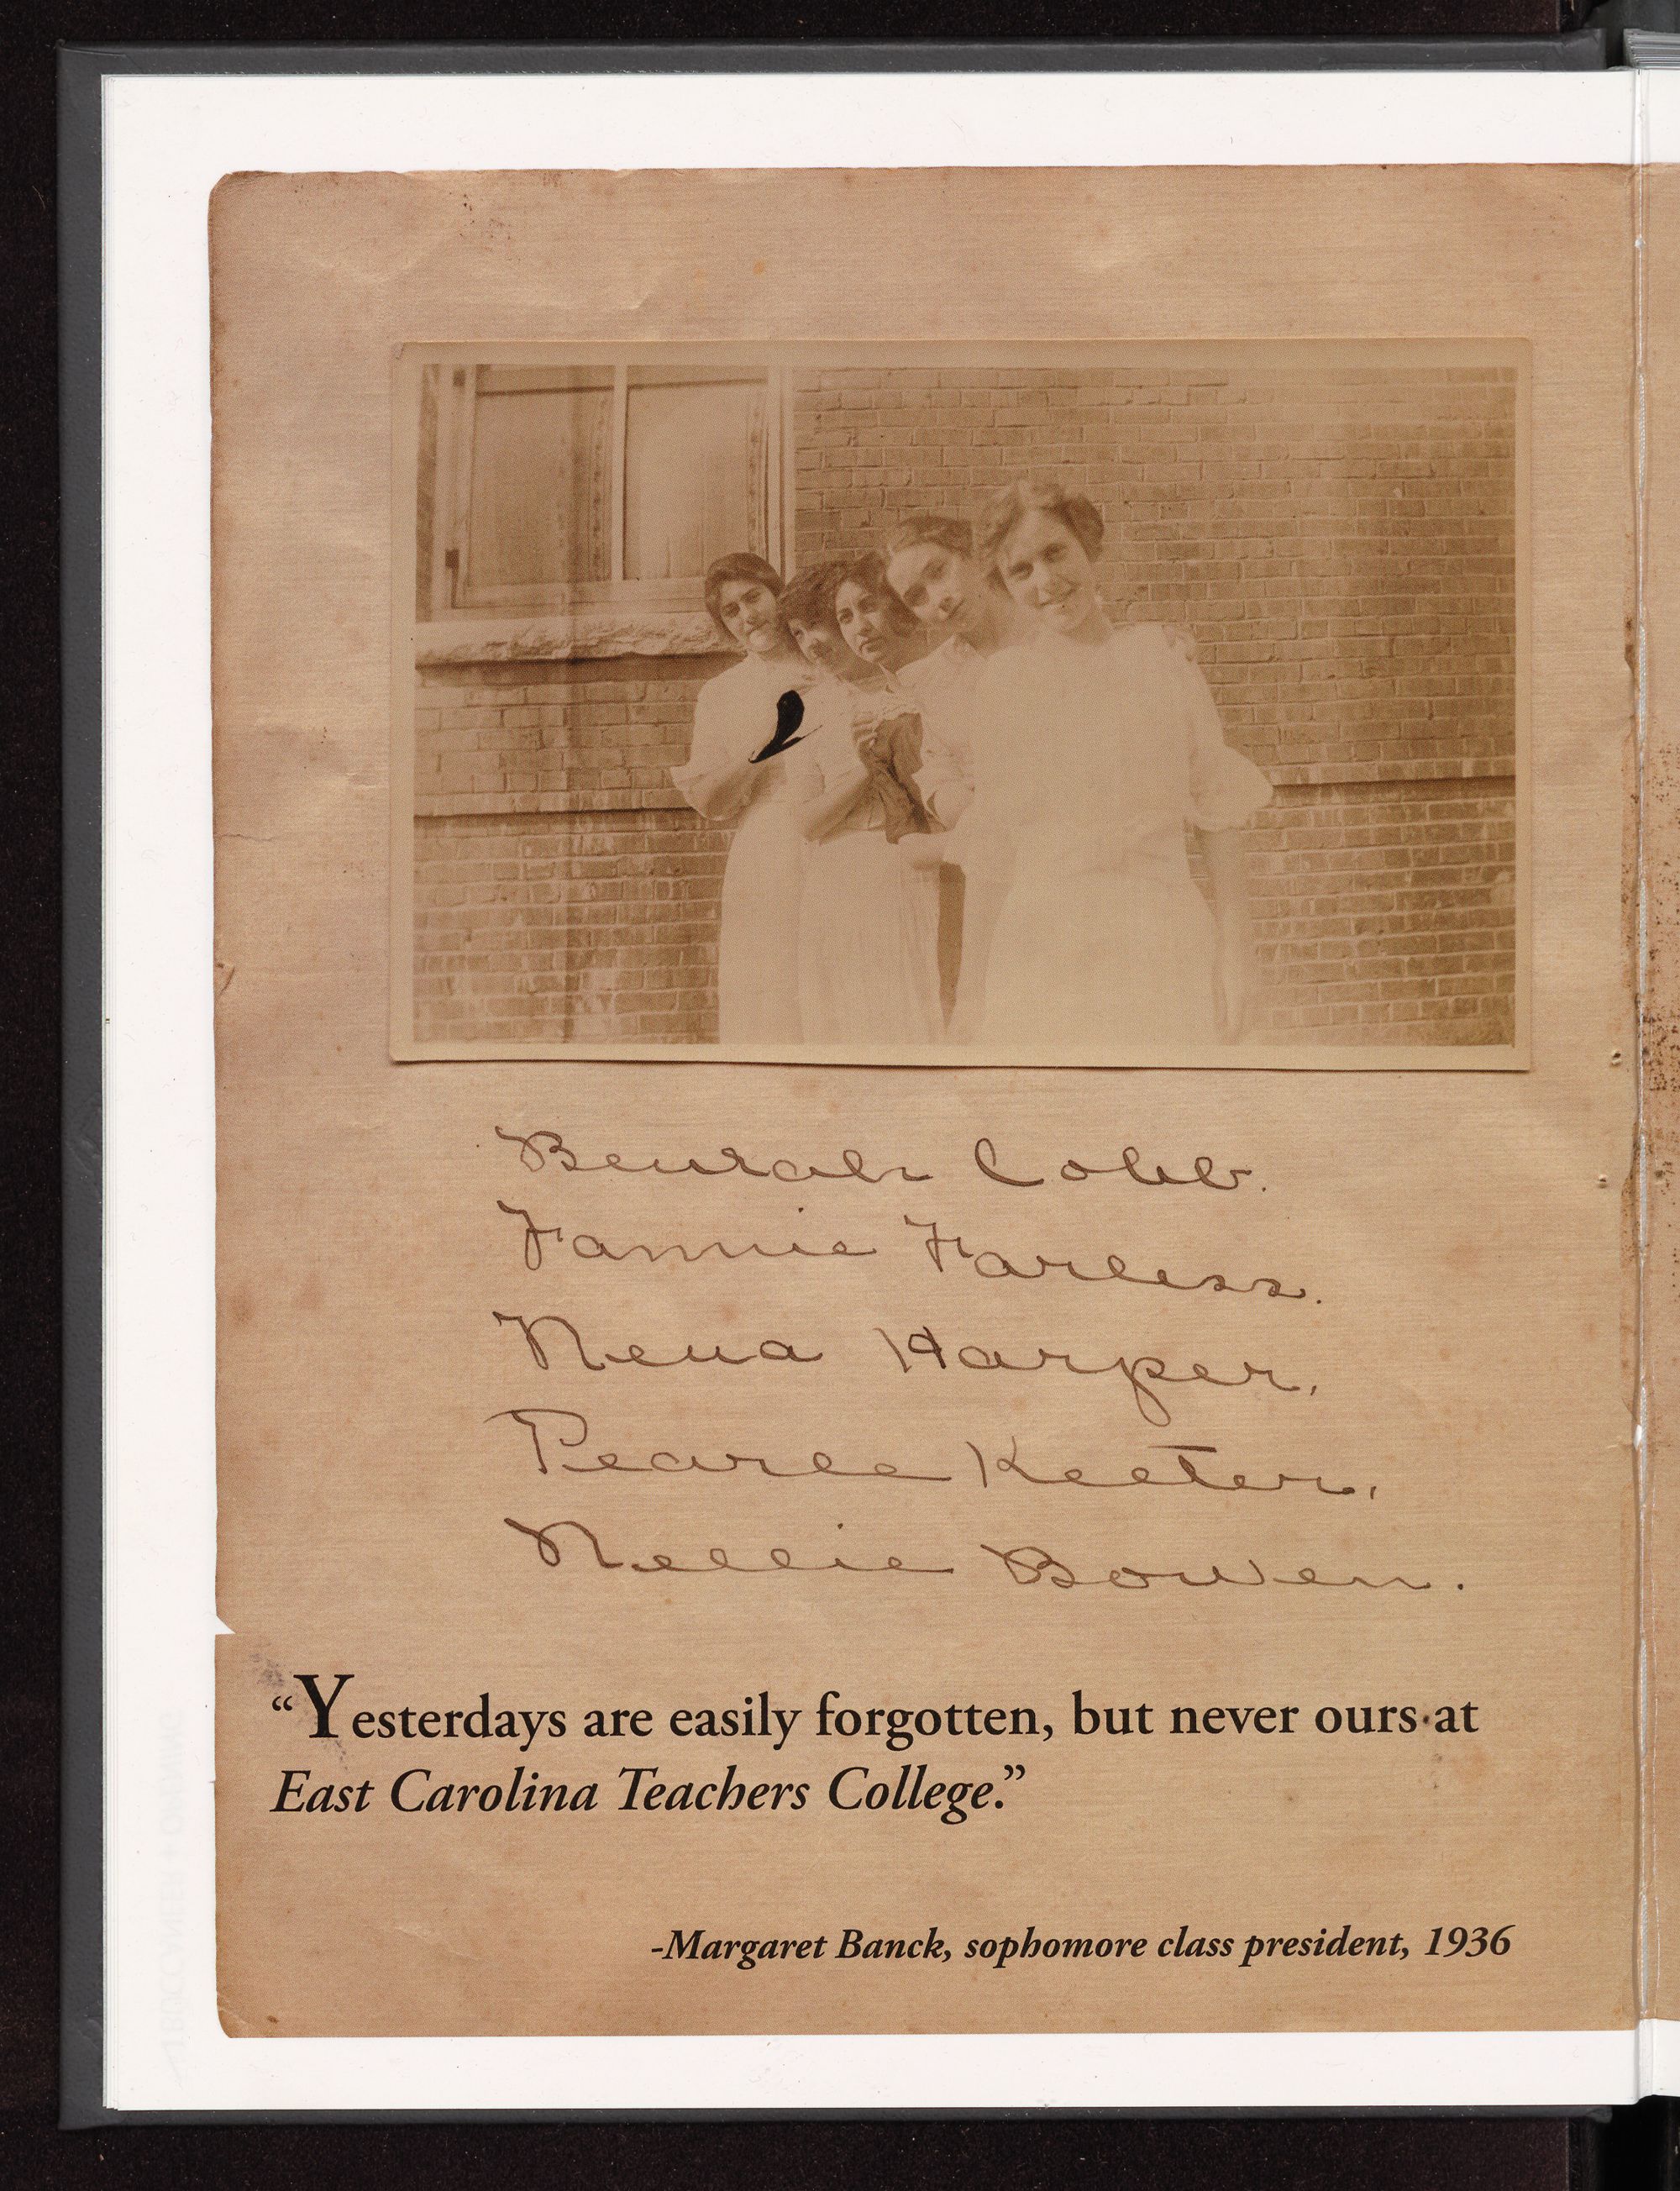 Beurah Cobb.
Fannie Farless.
Nena Harper.
Pearle Keeter.
Nellie Bowen.
“Yesterdays are easily forgotten, but never ours at
East Carolina Teachers College.”
-Margaret Banck, sophomore class president, 1936